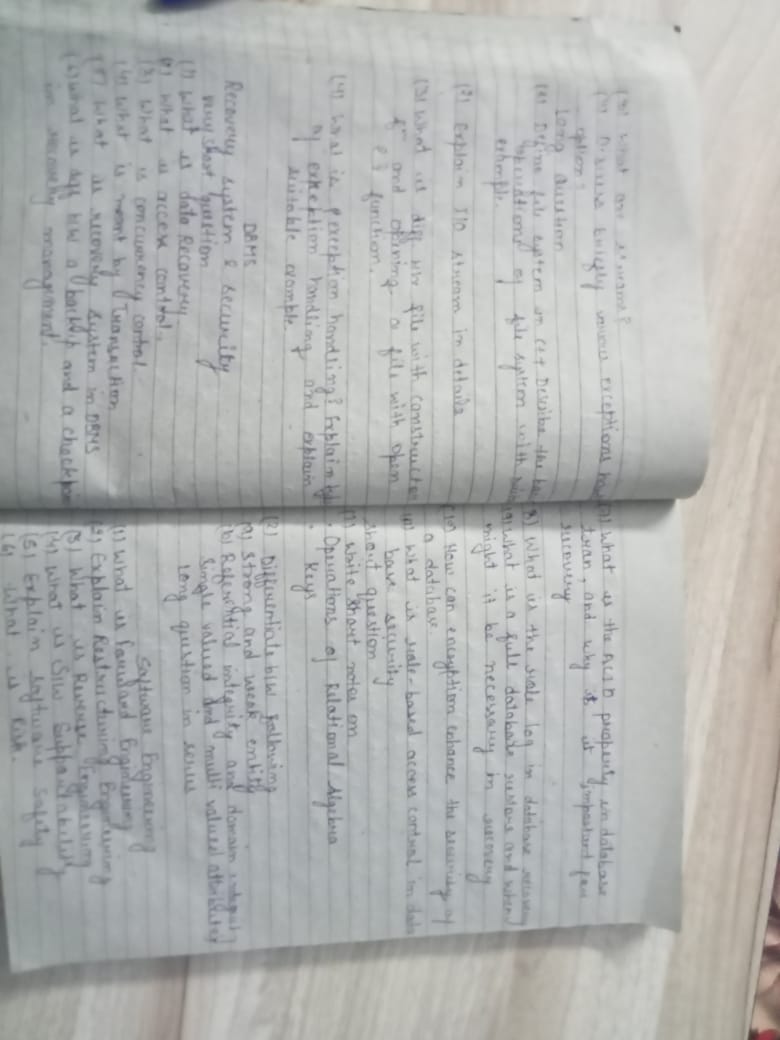 (3) What are streams?
(4) Discuss briefly various exceptions
option?
Long Question
(1) Define file system in C++ Describe the
operations of file system with
example.
(2) Explain I/O stream in details
(3) What is diff b/w file with constructor
fn and opening a file with open
function.
(4) What is exception handling? Explain
of exception handling and explain
suitable example.
DBMS
Recovery system & security
very short question
(1) What is data Recovery.
(2) What is access control.
(3) What is concurrency control.
(4) What is meant by Transaction
(5) What is recovery system in DBMS
(6) What is diff b/w a backup and a checkpoin
in recovery management.
(7) What is the ACID property in database
tran, and why is it important for
recovery
(8) What is the role log in database recovery
(9) What is a full database restore and when
might it be necessary in recovery
(10) How can encryption enhance the security of
a database.
(11) What is role-based access control in data
base security
Short question
(1) Write short notes on
. Operations of Relational Algebra
. Keys
(2) Differentiate b/w following
(a) Strong and weak entity
(b) Referential integrity and domain integrity
Single valued and multi valued attributes
Long question in series
Software Engineering
(1) What is forward Engineering
(2) Explain Restructuring Engineering
(3) What is Reverse Engineering
(4) What is S/W Supportability
(5) Explain Software Safety
(6) What is Risk.